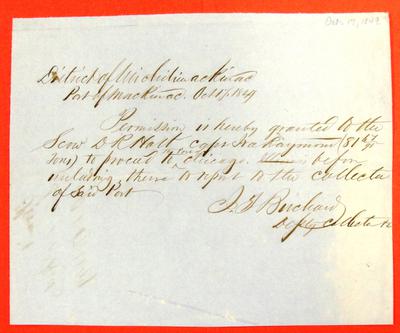 Oct. 17, 1849
District of Michilimackinac
Port of Mackinac Oct 17 1849
Permission is hereby granted to the
Schr D R Holt, capt Ira Raymond (81 67/95
tons) to proceed to Chicago is before
unlading there to report to the collector
of Said Port
Burchard
Depty Collector